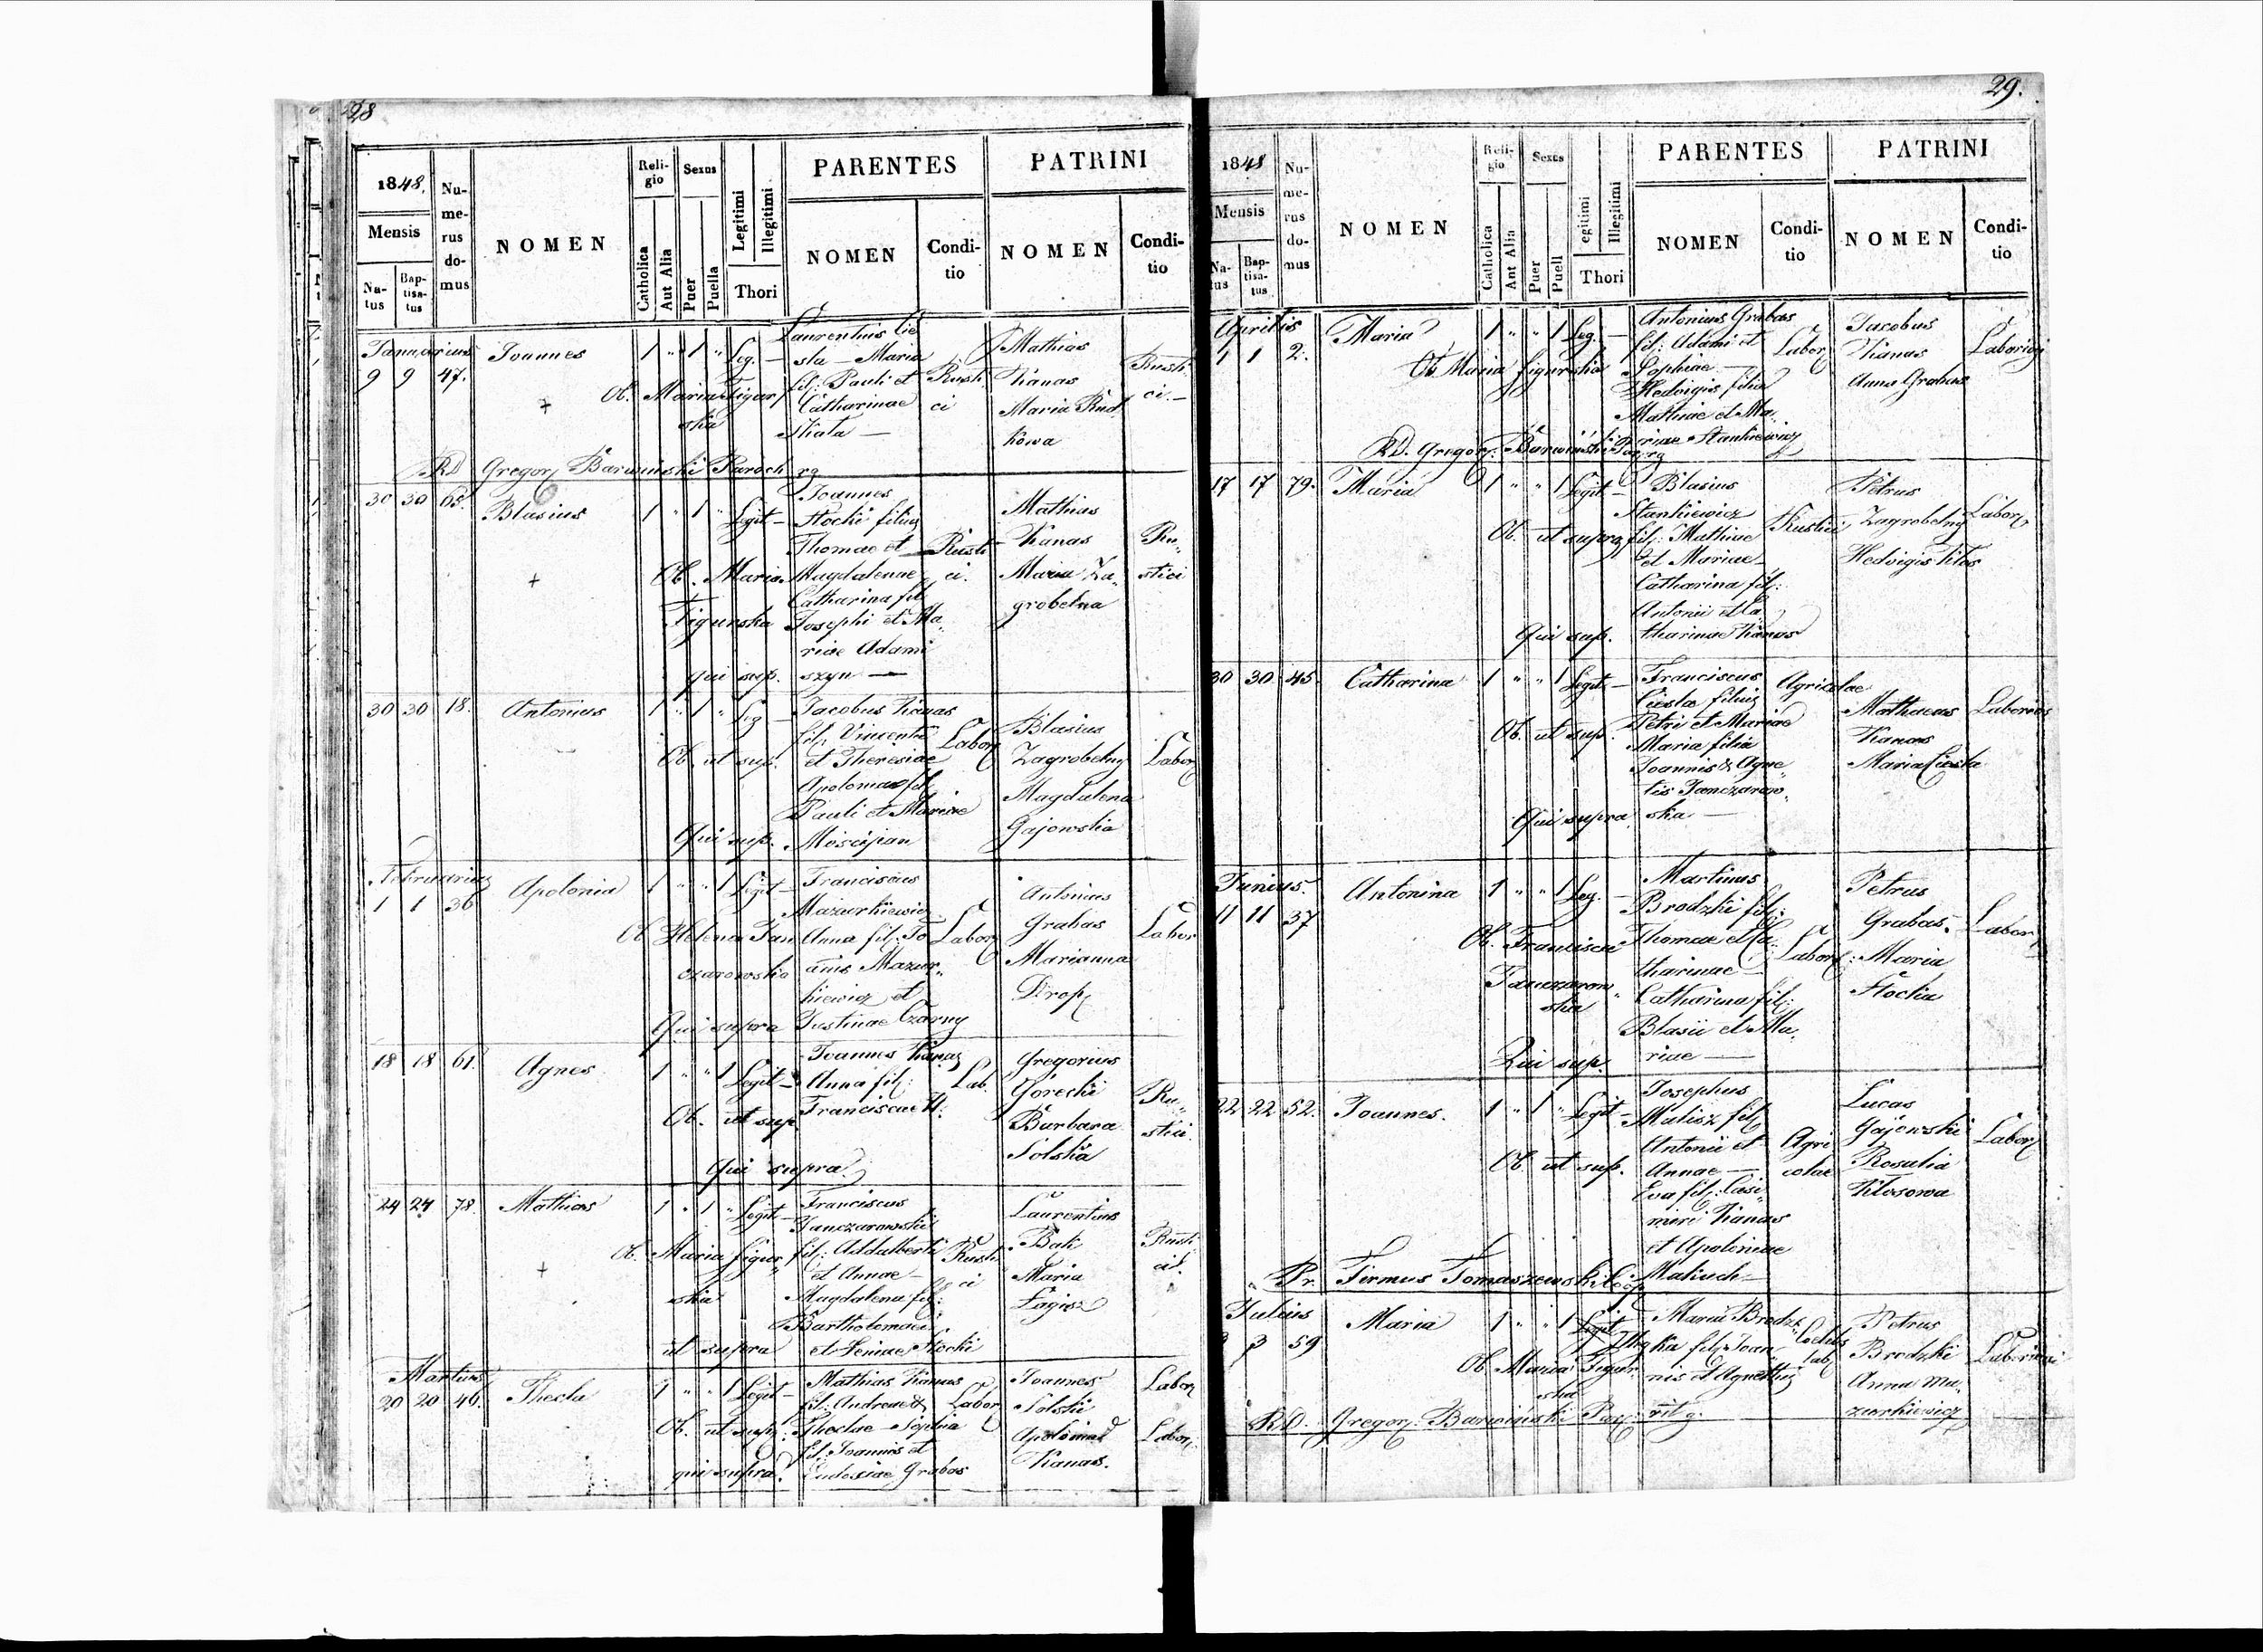 28
1848.
Mensis
Na-
tus
Bap-
tisa-
tus
Nu-
me-
rus
do-
mus
NOMEN
Reli-
gio
Catholica
Aut Alia
Sexus
Puer
Puella
Legitimi
Illegitimi
Thori
PARENTES
NOMEN
Condi-
tio
PATRINI
NOMEN
Condi-
tio
Januarius
9 9 47.
Joannes
1 " 1 " Leg. —
Laurentius Cie
sla — Maria
fil: Pauli et
Catharinae
Skała —
Rusti
ci
Mathias
Kanas
Maria Rud
kowa
Rusti
ci. —
+
Ob. Maria Figur
ska
RD Gregor Barwiński Paroch
30 30 65.
Blasius
1 " 1 " Legit —
Joannes
Stocki filius
Thomae et
Magdalenae
Catharina fil
Josephi et Ma„
riae Adami
szyn —
Rusti
ci.
Mathias
Kanas
Maria Za„
grobelna
Ru„
stici
+
Ob. Maria
Figurska
qui sup.
30 30 18.
Antonius
1 " 1 " Leg —
Jacobus Kanas
fil. Vincentii
et Theresiae
Apolonia fil
Pauli et Mariae
Mościpan
Labor
Blasius
Zagrobelny
Magdalena
Gajowska
Labor
Ob. ut sup.
Qui sup.
Februarius
1 1 36
Apolonia
1 " " 1 Legit —
Franciscus
Mazurkiewicz
Anna fil: Jo
anis Mazur„
kiewicz et
Justinae Czarny
Labor
Antonius
Grabas
Marianna
Drop
Labor
Ob Helena Jan
czarowska
Qui supra
18 18 61.
Agnes
1 " " 1 Legit —
Joannes Kanas
Anna fil:
Franciscae
Lab.
Gregorius
Górecki
Barbara
Solska
Ru„
stici
Ob. ut sup
Qui supra
24 24 78.
Mathias
1 " 1 " Legit —
Franciscus
Janczarowski
fil: Addalberti
et Annae —
Magdalena fil:
Bartholomaei
et Xeniae Stocki
Rusti
ci
Laurentius
Bak
Maria
Rusti
ci.
+
Ob. Maria Figur„
ska
ut supra
Martius
20 20 46.
Thecla
1 " " 1 Legit —
Mathias Kanas
fil: Andreae &
Theclae Sophia
fil: Joannis et
Eudosiae Grabas
Labor
Joannes
Solski
Apolonia
Kanas.
Labor
Labor.
Ob. ut sup.
qui supra
29.
1848
Mensis
Na-
tus
Bap-
tisa-
tus
Nu-
me-
rus
do-
mus
NOMEN
Reli-
gio
Catholica
Aut Alia
Sexus
Puer
Puell
egitimi
Illegitimi
Thori
PARENTES
NOMEN
Condi-
tio
PATRINI
NOMEN
Condi-
tio
Aprilis
1 1 2.
Maria
1 " " 1 Leg —
Antonius Grabas
fil: Adami et
Sophiae —
Hedvigis filia
Mathiae et Ma„
riae Stankiewicz
Labor
Jacobus
Kanas
Anna Grabas
Laboriosi
Ob Maria Figurska
RD. Gregor. Barwiński
17 17 79.
Maria
1 " " 1 Legit —
Blasius
Stankiewicz
fil: Mathiae
et Mariae
Catharina fil:
Antonii et Ca„
tharinae Kanas
Rustici
Petrus
Zagrobelny
Hedvigis Kłos
Labor
Ob. ut supra
Qui sup.
30 30 45.
Catharina
1 " " 1 Legit —
Franciscus
Ciesla filius
Petri et Mariae
Maria filia
Joannis & Agne„
tis Janczarow„
ska —
Agricolae
Mathaeus
Kanas
Maria Ciesla
Laborios
Ob. ut sup.
Qui supra
Junius.
11 11 37
Antonina
1 " " 1 Leg. —
Martinus
Brodzki fil:
Thomae et Ca„
tharinae —
Catharina fil:
Blasii et Ma„
riae —
Labor:
Petrus
Grabas.
Maria
Stocka
Labor
Ob. Francisca
Janczarow„
ska
Qui sup.
22 22 52.
Joannes.
1 " 1 " Legit —
Josephus
Malisz fil
Antonii et
Annae —
Eva fil: Casi„
miri Kanas
et Apoloniae
Maliuch —
Agri
colae
Lucas
Gajowski
Rosalia
Kłosowa
Labor
Ob. ut sup.
Pr. Firmus Tomaszewski Coop
Julius
3 3 59
Maria
1 " " 1
Maria Brodz„
ka fil: Joan„
nis et Agnethis
Petrus
Brodzki
Anna Ma„
zurkiewicz
Laboriosi
Ob. Maria Figur„
ska
RD. Gregor. Barwiński Par.